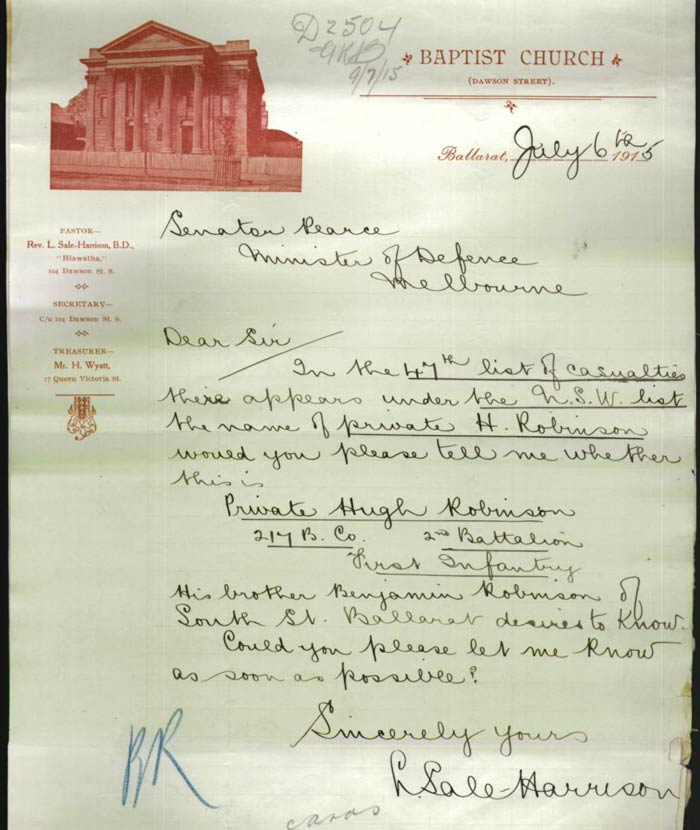 D2504
9/7/15
BAPTIST CHURCH
(DAWSON STREET).
Ballarat, July 6th 1915
PASTOR—
Rev. L. Sale-Harrison, B.D.,
"Hiawatha,"
104 Dawson St. S.
SECRETARY—
C/o 104 Dawson St. S.
TREASURER—
Mr. H. Wyatt,
17 Queen Victoria St.
Senator Pearce
Minister of Defence
Melbourne
Dear Sir
In the 47th list of casualties
there appears under the N.S.W. list
the name of private H. Robinson
would you please tell me whether
this is
Private Hugh Robinson
217 B. Co. 2nd Battalion
First Infantry
His brother Benjamin Robinson of
South St. Ballarat desires to know.
Could you please let me know
as soon as possible?
Sincerely yours
L. Sale-Harrison
BR